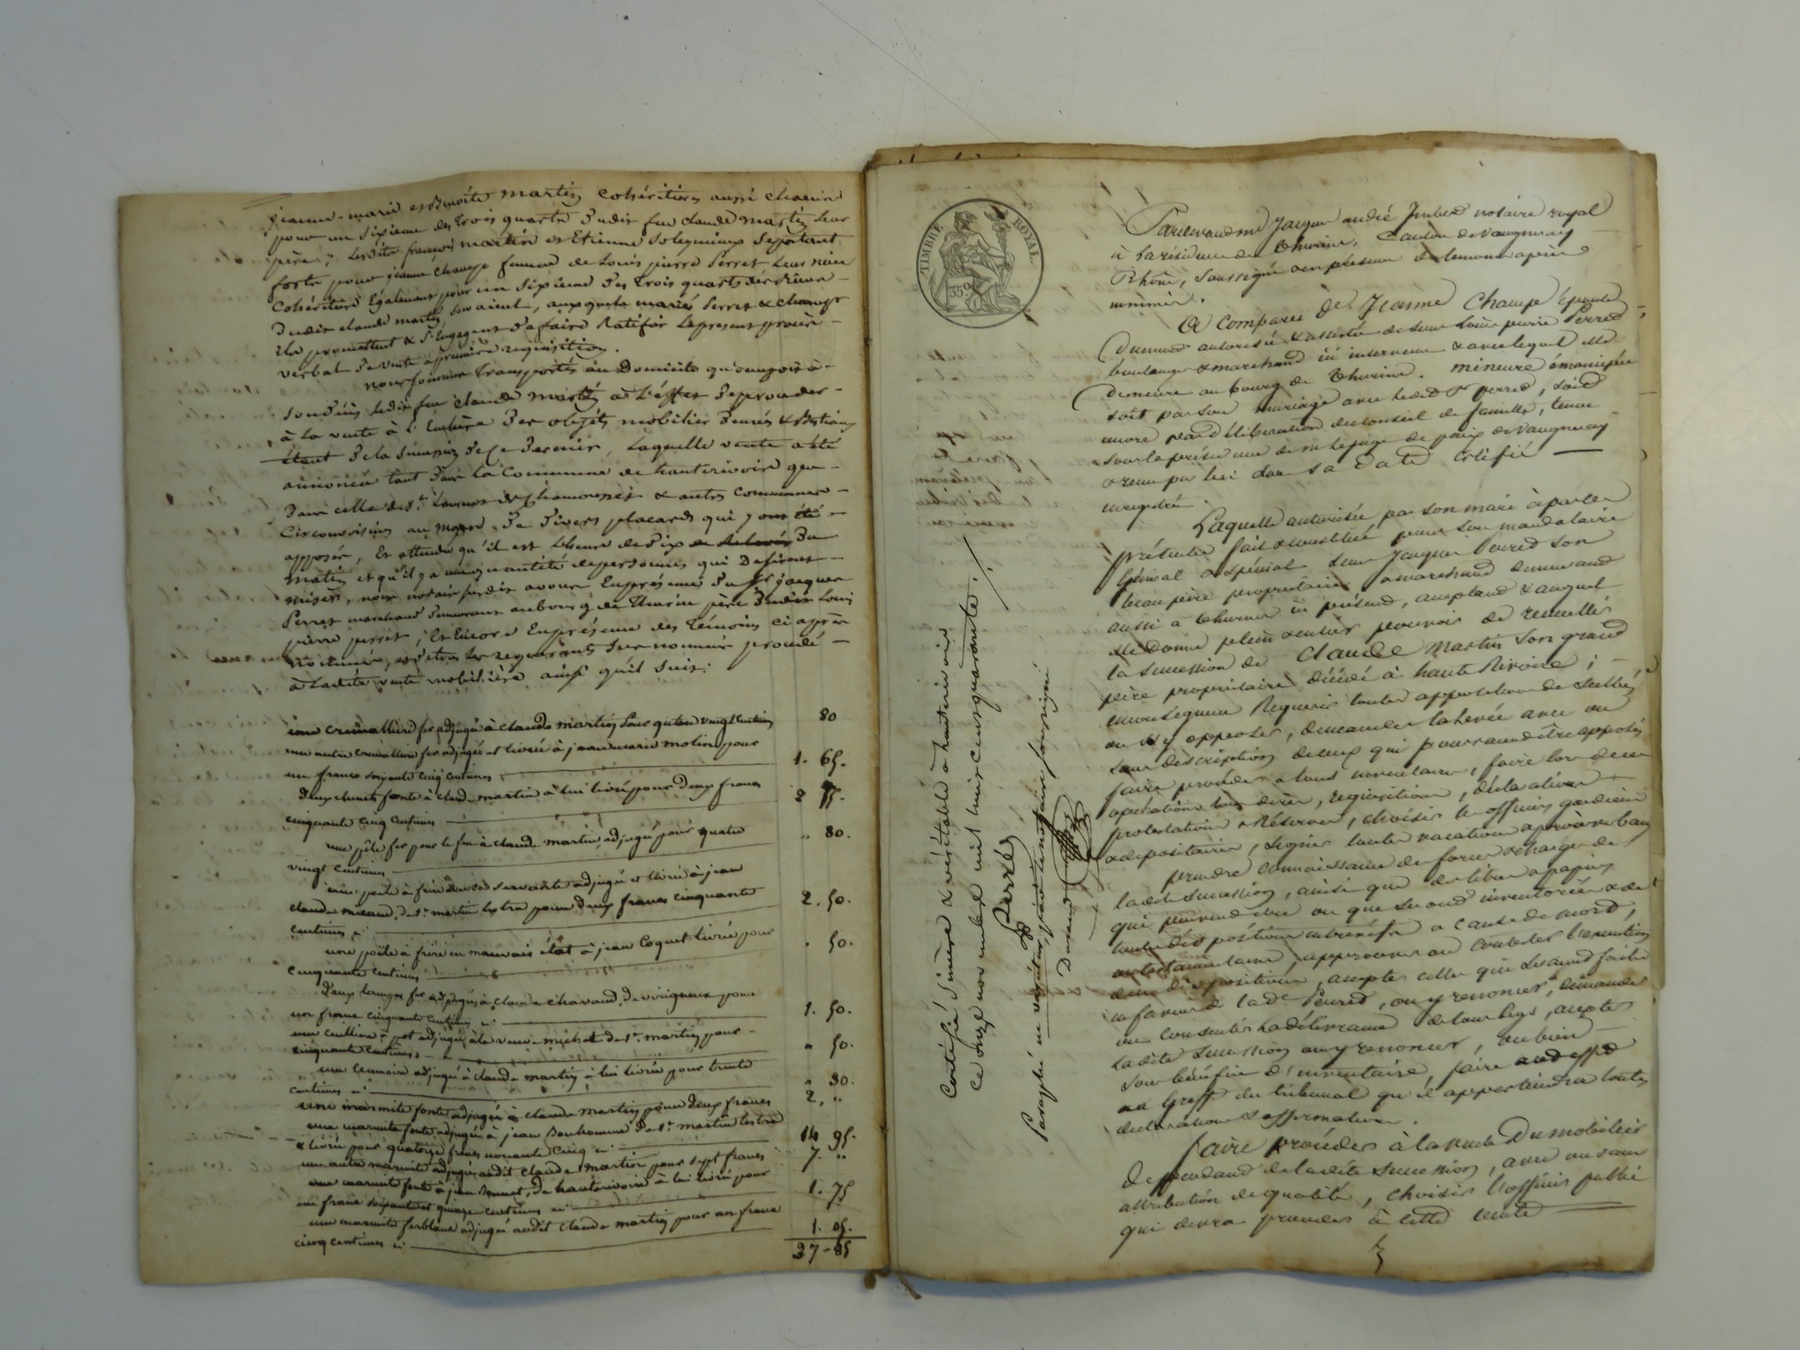 jeanne-marie et Benoite martin cohéritiers aussi chacun
pour un sixieme des trois quarts dudit feu claude martin leur
père; lesdits françois martin et Etienne soleymieux se portent
forts pour jeanne champe femme de Louis pierre Perret leur niece
cohéritière Egalement pour un sixième des trois quarts derniers
dudit claude martin son aieul, auxquels mariés Perret et champe
ils promettent & s'engagent de faire Ratifier le present procès-
verbal de vente à première requisition.
nous sommes transportés au Domicile qu'occupoit à
son décès ledit feu claude martin à l'effet de procéder
à la vente à l'Enchère des objets mobilier Denrés & Bestiaux
de la succession de ce dernier, laquelle vente a été
annoncée tant dans la commune de hauterivoire que
dans celle de st. Laurent de chamousset & autres communes
circonvoisines au moyen de divers placards qui y ont été
apposés, Et attendu qu'il est l'heure de dix du
matin et qu'il y a une quantité de personnes qui Desirent
miser, nous notaire susdit avons En présence du sr. jacques
Perret marchand demeurant au bourg de Thurin père dudit Louis
pierre perret, Et Encore En présence des témoins ci après
nommés, et des requerants sus nommés procédé
à ladite vente mobilière ainsi qu'il suit:
une crémaillère fer adjugée à claude martin pour quatre vingt centimes 80
une autre cremaillere fer adjugée et livrée à jean marie molin pour
un franc soixante cinq centimes 1. 65.
deux chenets fonte à claude martin à lui livré pour deux francs
cinquante cinq centimes 2 55.
une pêle fer pour le feu à claude martin adjugé pour quatre
vingt centimes " 80.
une poële à frire adjugé et livrée à jean
claude de st. martin lestra pour deux francs cinquante
centimes 2. 50.
une poële à frire en mauvais état à jean Coquet livrée pour
cinquante centimes . 50.
Deux fer adjugés à claude chavand, de pour
un franc cinquante centimes 1. 50.
une cuillère à pot adjugée à la veuve michel de st. martin pour
cinquante centimes " 50.
une adjugé à claude martin à lui livrée pour trente
centimes " 30.
une marmite fonte adjugé à claude martin pour deux francs 2, "
une marmite fonte adjugée à jean Bonhomme de st. martin lestra
& livrée pour quatorze francs nonante cinq 14 95.
une autre marmite adjugée audit claude martin pour sept francs 7. "
une marmite fonte à jean de hauterivoire à lui livré pour
un franc soixante et quinze centimes 1. 75
une marmite ferblanc adjugé audit claude martin pour un franc
cinq centimes 1. 05.
37-85
TIMBRE ROYAL.
35c
Certifié sincère & véritable à hauterivoire
ce onze novembre mil huit cent quarante
Perret
Paraphé ne varietur par le notaire soussigné
Durand
Pardevant me Jacques andré Imbert notaire royal
à la résidence de Thurins, Canton de Vaugneray
Rhône, soussigné en présence des témoins après
nommés.
A comparu de Jeanne Champe Epouse
Dument autorisée & assistée de sieur Louis pierre Perret
boulanger & marchand ici intervenu & avec lequel elle
demeure au bourg de Thurins. mineure émancipée
soit par son mariage avec ledit sr perret, soit
encore par Délibération du conseil de famille, tenue
sous la présidence de mr le juge de paix de Vaugneray
& reçue par lui dans sa date
enregistré
Laquelle autorisée par son mari à parler
présente fait & constitue pour son mandataire
général & spécial sieur Jacques Perret son
beau père propriétaire & marchand demeurant
aussi à thurins ici présent, acceptant & auquel
elle donne plein & entier pouvoir de recueillir
la succession de Claude Martin son grand
père propriétaire décédé à haute Rivoire;
en conséquence Requérir toutes appositions de scellés
ou s'y opposer, demander la levée avec ou
sans description de ceux qui pourraient être apposés
faire procéder à tous inventaires, faire lors de ces
opérations tous dires, requisitions, déclarations
protestations & Réserves, choisir les officiers gardiens
& dépositaires, signer toutes vacations & procès verbaux
prendre connaissance des forces & charges de
ladite succession, ainsi que des titres & papiers
qui peuvent être ou que seront inventoriés & de
toutes dispositions entrevifs & à cause de mort,
ou testamentaire, approuver ou contester l'exécution
de ces dispositions, accepter celles qui seraient faites
en faveur de la de Perret, ou y renoncer, demander
ou consentir la délivrance de tous legs, accepter
ladite succession ou y renoncer, ou bien
sous bénéfice d'inventaire, faire
au Greffe du tribunal qu'il appartiendra toutes
déclarations & affirmations.
faire procéder à la vente Du mobilier
Dependant de ladite succession, avec ou sans
attribution de qualité, choisir l'officier public
qui devra procéder à cette vente